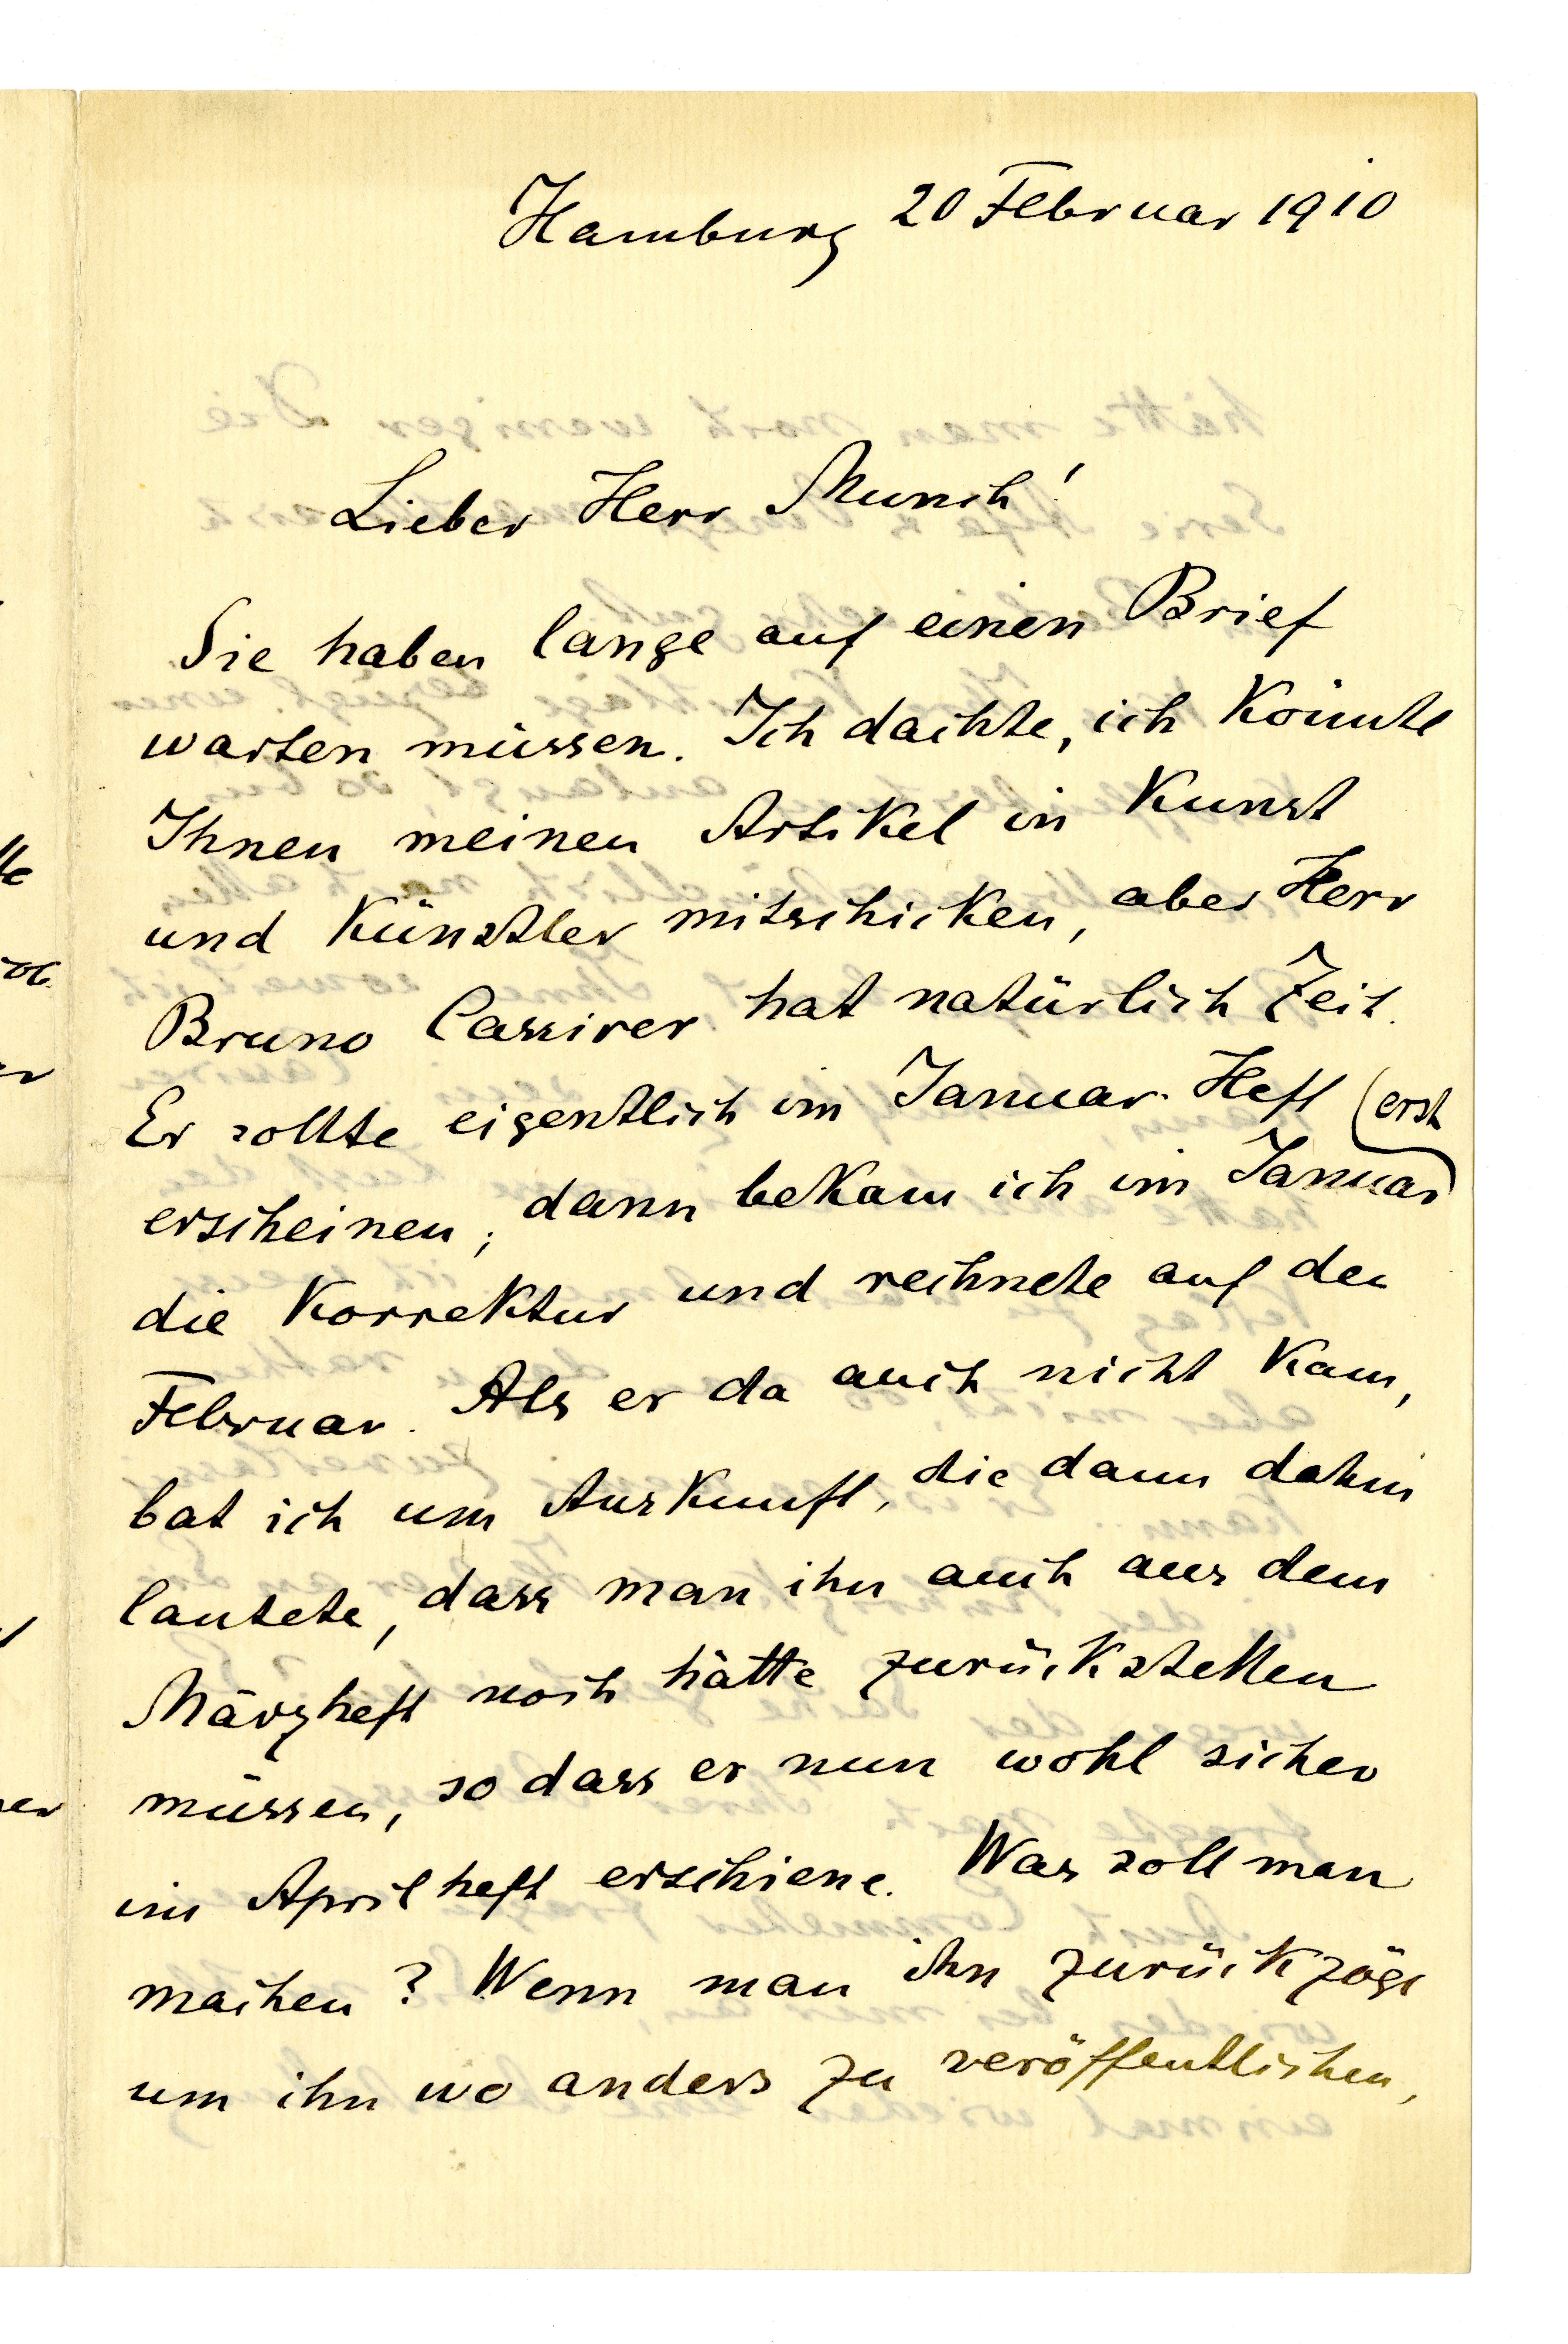 Hamburg 20 Februar 1910
Lieber Herr Munch!
Sie haben lange auf einen Brief
warten müssen. Ich dachte, ich könnte
Ihnen meinen Artikel in Kunst
und Künstler mitschicken, aber Herr
Bruno Cassirer hat natürlich Zeit.
Er sollte eigentlich im Januar-Heft (erst
erscheinen; dann bekam ich im Januar)
die Korrektur und rechnete auf den
Februar. Als er da auch nicht kam,
bat ich um Auskunft, die dann dahin
lautete, dass man ihn auch aus dem
Märzheft noch hätte zurückstellen
müssen, so dass er nun wohl sicher
im Aprilheft erschiene. Was soll man
machen? Wenn man ihn zurückzöge
um ihn wo anders zu veröffentlichen,